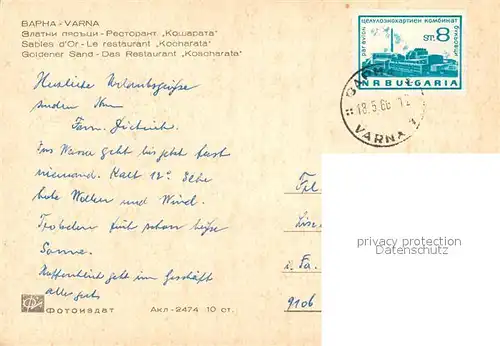 ВАРНА - VARNA
Златни пясъци - Ресторант „Кошарата"
Sables d'Or - Le restaurant „Kocharata"
Goldener Sand - Das Restaurant „Koscharata"
par avion
целулознохартиен комбинат
ст. 8
NR BULGARIA
18.5.66
VARNA
Herzliche Urlaubsgrüsse
senden Ihnen
Fam. Dietrich.
Ins Wasser geht bis jetzt fast
niemand. Kalt 12°
hohe Wellen und Wind.
Trotzdem schon
Sonne.
Hoffentlich geht im Geschäft
alles gut
i. Fa.
9106
privacy protection
Datenschutz
Фотоиздат Акл-2474 10 ст.